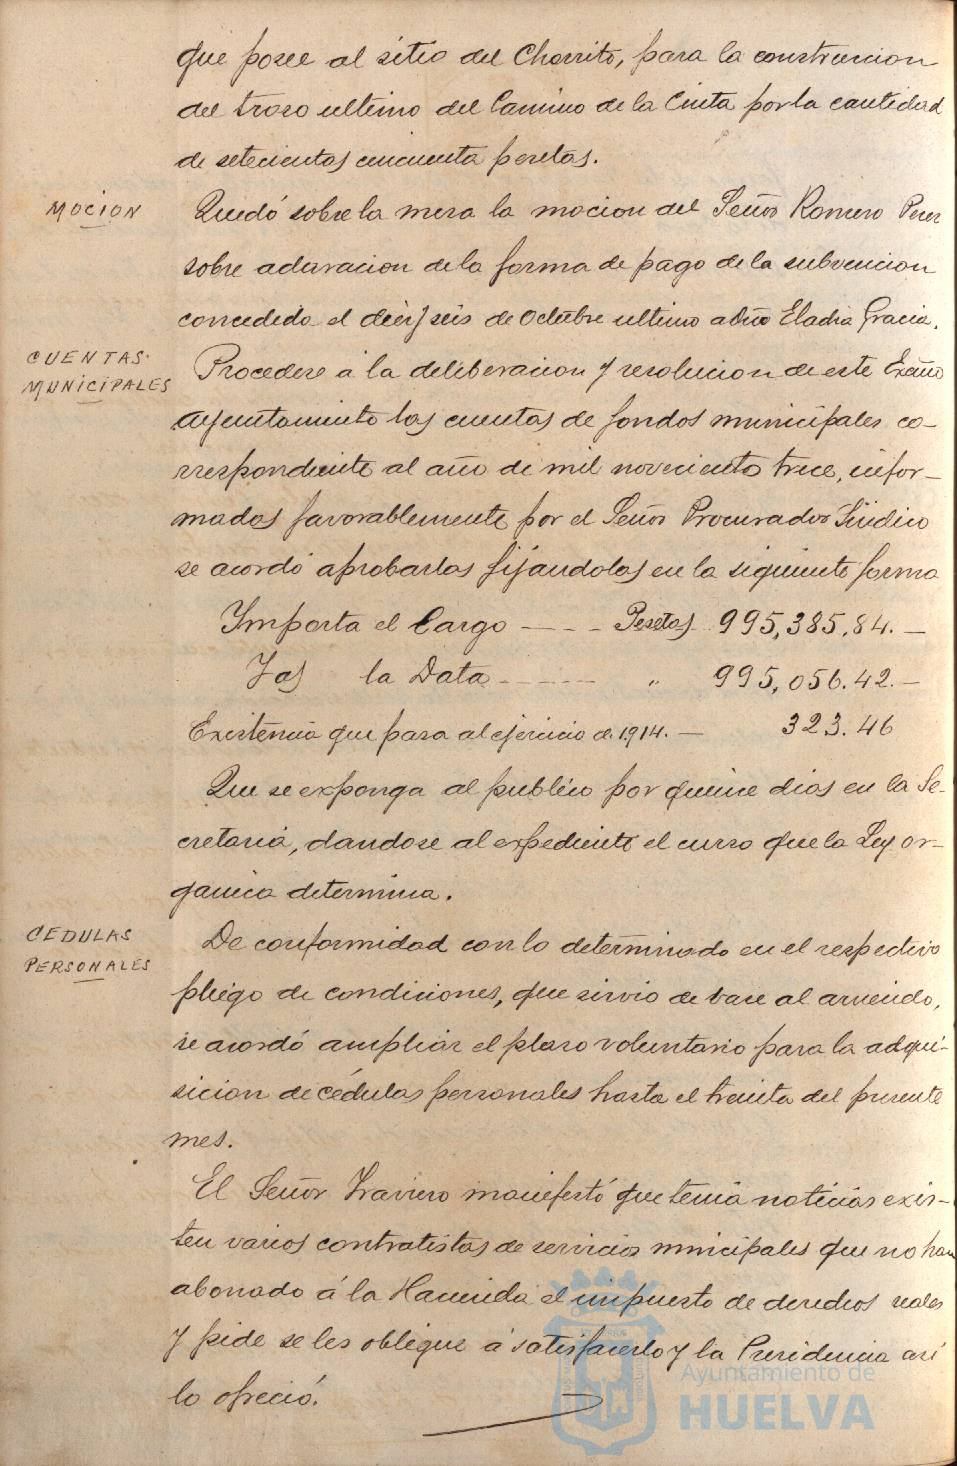 que posee al sitio del Chorrito, para la construccion
del troso ultimo del Camino de la Cinta por la cantidad
de setecientas cincuenta pesetas.
MOCION
Quedó sobre la mesa la mocion del Señor Romero Perez
sobre aclaracion de la forma de pago de la subvencion
concedida el diez y seis de Octubre ultimo a Dña Eladia Gracia.
CUENTAS
MUNICIPALES
Procedese á la deliberacion y resolucion de este Excmo
Ayuntamiento las cuentas de fondos municipales co-
rrespondiente al año de mil novecientos trece, infor-
madas favorablemente por el Señor Procurador Síndico
se acordó aprobarlas fijandolas en la siguiente forma
Importa el Cargo --- Pesetas 995,385,84.-
Y as la Data ----- " 995,056.42.-
Existencia que pasa al ejercicio de 1914.- 323.46
Que se exponga al publico por quince dias en la Se-
cretaria, dandose al expediente el curso que la Ley or-
ganica determina.
CEDULAS
PERSONALES
De conformidad con lo determinado en el respectivo
pliego de condiciones, que sirvio de base al arriendo,
se acordó ampliar el plaso voluntario para la adqui-
sicion de cédulas personales hasta el treinta del presente
mes.
El Señor Traviero manifestó que tenia noticias exis-
ten varios contratistas de servicios mnicipales que no han
abonado á la Hacienda el impuesto de derechos reales
y pide se les obligue á satisfacerlo y la Presidencia asi
lo ofreció.
Ayuntamiento de
HUELVA